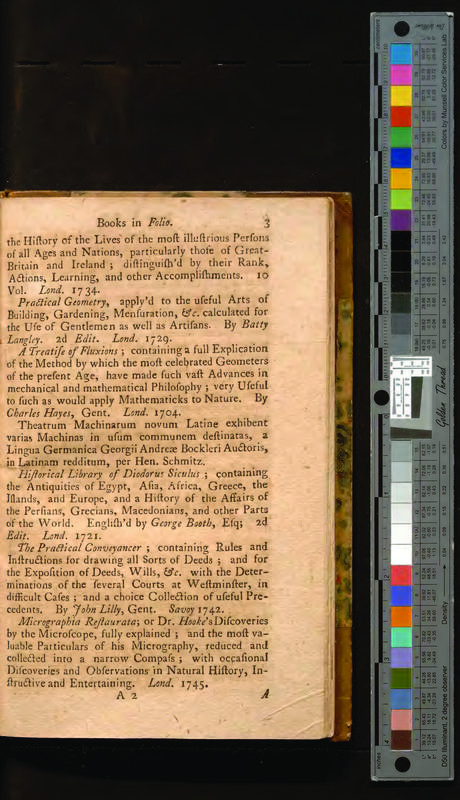 Books in Folio. 3
the Hiſtory of the Lives of the moſt illuſtrious Perſons
of all Ages and Nations, particularly thoſe of Great-
Britain and Ireland ; diſtinguiſh'd by their Rank,
Actions, Learning, and other Accompliſhments. 10
Vol. Lond. 1734.
Practical Geometry, apply'd to the uſeful Arts of
Building, Gardening, Menſuration, &c. calculated for
the Uſe of Gentlemen as well as Artiſans. By Batty
Langley. 2d Edit. Lond. 1729.
A Treatiſe of Fluxions ; containing a full Explication
of the Method by which the moſt celebrated Geometers
of the preſent Age, have made ſuch vaſt Advances in
mechanical and mathematical Philoſophy ; very Uſeful
to ſuch as would apply Mathematicks to Nature. By
Charles Hayes, Gent. Lond. 1704.
Theatrum Machinarum novum Latine exhibent
varias Machinas in uſum communem deſtinatas, a
Lingua Germanica Georgii Andreæ Bockleri Auctoris,
in Latinam redditum, per Hen. Schmitz.
Hiſtorical Library of Diodorus Siculus ; containing
the Antiquities of Egypt, Aſia, Africa, Greece, the
Iſlands, and Europe, and a Hiſtory of the Affairs of
the Perſians, Grecians, Macedonians, and other Parts
of the World. Engliſh'd by George Booth, Eſq; 2d
Edit. Lond. 1721.
The Practical Conveyancer ; containing Rules and
Inſtructions for drawing all Sorts of Deeds ; and for
the Expoſition of Deeds, Wills, &c. with the Deter-
minations of the ſeveral Courts at Weſtminſter, in
difficult Caſes ; and a choice Collection of uſeful Pre-
cedents. By John Lilly, Gent. Savoy 1742.
Micrographia Reſtaurata; or Dr. Hooke's Diſcoveries
by the Microſcope, fully explained ; and the moſt va-
luable Particulars of his Micrography, reduced and
collected into a narrow Compaſs ; with occaſional
Diſcoveries and Obſervations in Natural Hiſtory, In-
ſtructive and Entertaining. Lond. 1745.
A 2 A
Colors by Munsell Color Services Lab
Golden Thread
Density
D50 Illuminant, 2 degree observer
inches